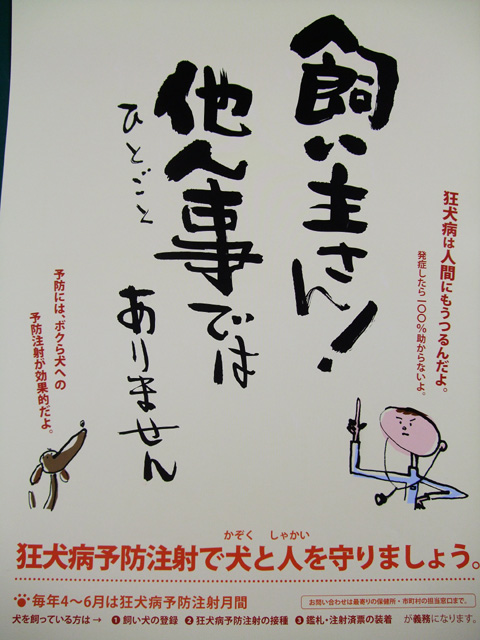 飼い主さん!
他人事では
ひとごと
ありません
狂犬病は人間にもうつるんだよ。
発症したら一〇〇%助からないよ。
予防には、ボクら犬への
予防注射が効果的だよ。
かぞく しゃかい
狂犬病予防注射で犬と人を守りましょう。
毎年4〜6月は狂犬病予防注射月間
お問い合わせは最寄りの保健所・市町村の担当窓口まで。
犬を飼っている方は→ ❶飼い犬の登録 ❷狂犬病予防注射の接種 ❸鑑札・注射済票の装着 が義務になります。